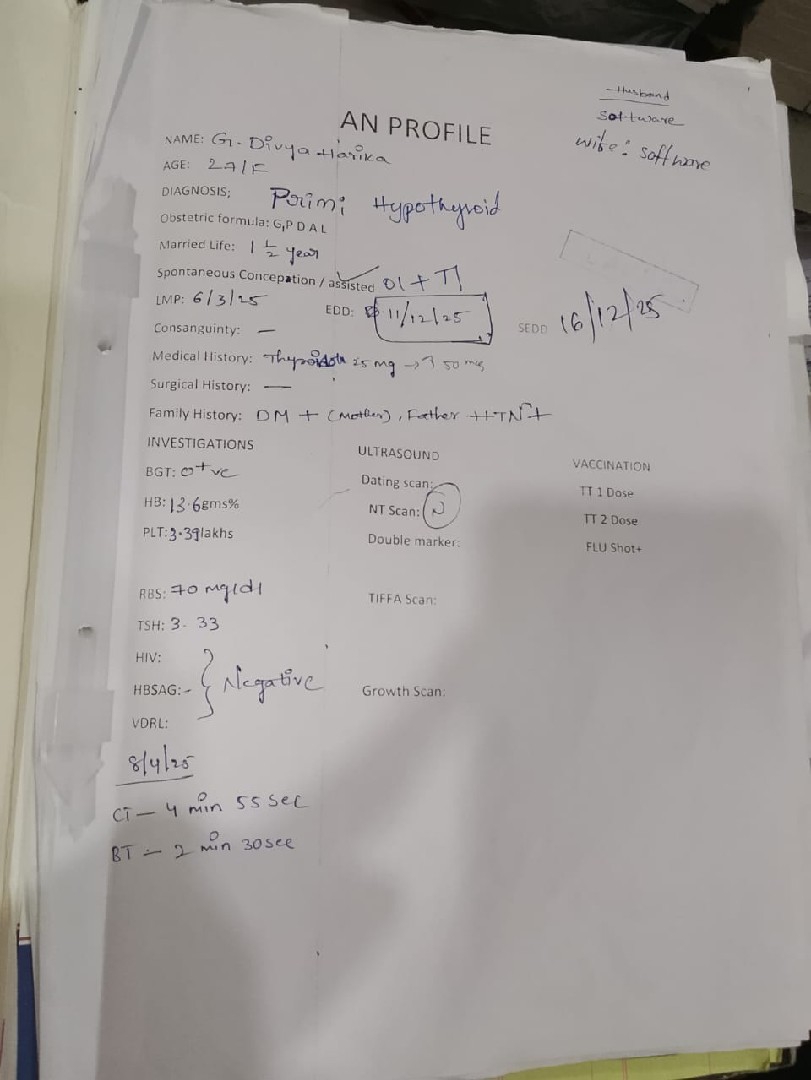 Husband
Software
wife: software
AN PROFILE
NAME: G. Divya Harika
AGE: 27/F
DIAGNOSIS; Primi Hypothyroid
Obstetric formula: G,P D A L
Married Life: 1 1/2 year
Spontaneous Concepation / assisted ✓ OI + TI
LMP: 6/3/25 EDD: 11/12/25 SEDD 16/12/25
Consanguinty: —
Medical History: 25 mg → 50 mg
Surgical History: —
Family History: DM + (Mother), Father HTN +
INVESTIGATIONS ULTRASOUND VACCINATION
BGT: O+ve Dating scan: TT 1 Dose
HB: 13.6gms% NT Scan: N TT 2 Dose
PLT: 3.39lakhs Double marker: FLU Shot+
RBS: 70 mg/dl TIFFA Scan:
TSH: 3.33
HIV:
HBSAG:- } Negative Growth Scan:
VDRL:
8/4/25
CT — 4 min 55 sec
BT — 2 min 30 sec